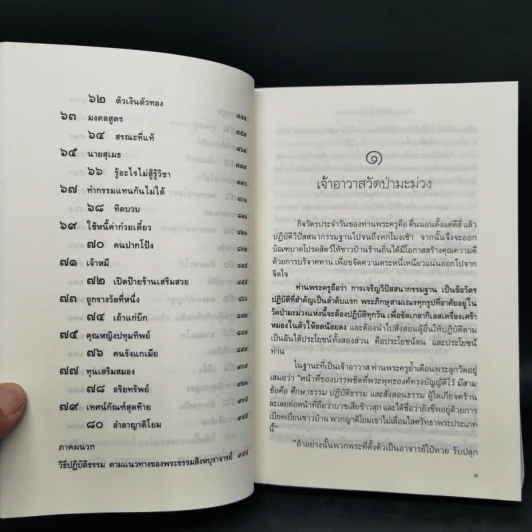 ๖๒ ตัวเงินตัวทอง
๖๓ มงคลสูตร
๖๔ สรณะที่แท้
๖๕ นายสุเมธ
๖๖ รู้อะไรไม่สู้รู้วิชา
๖๗ ทำกรรมแทนกันไม่ได้
๖๘ ทิดบวบ
๖๙ ใช้หนี้ค่าก๋วยเตี๋ยว
๗๐ คนปากโป้ง
๗๑ เจ้าหมี
๗๒ เปิดป้ายร้านเสริมสวย
๗๓ ถูกรางวัลที่หนึ่ง
๗๔ เถ้าแก่บั๊ก
๗๕ คุณหญิงปทุมทิพย์
๗๖ คนรังแกเมีย
๗๗ ทุนเสริมสมอง
๗๘ อริยทรัพย์
๗๙ เทศน์กัณฑ์สุดท้าย
๘๐ อำลาญาติโยม
ภาคผนวก
วิธีปฏิบัติธรรม ตามแนวทางของพระธรรมสิงหบุราจารย์
๑
เจ้าอาวาสวัดป่ามะม่วง
กิจวัตรประจำวันของท่านพระครูคือ ตื่นนอนตั้งแต่ตีสี่ แล้ว
ปฏิบัติวิปัสสนากรรมฐานไปจนถึงหกโมงเช้า จากนั้นจึงจะออก
บิณฑบาตโปรดสัตว์ให้ชาวบ้านร้านถิ่นได้มีโอกาสสร้างคุณความดี
ด้วยการบริจาคทาน เพื่อขจัดความตระหนี่เหนียวแน่นออกไปจาก
จิตใจ
ท่านพระครูถือว่า การเจริญวิปัสสนากรรมฐาน เป็นข้อวัตร
ปฏิบัติที่สำคัญเป็นลำดับแรก พระภิกษุสามเณรทุกรูปที่อาศัยอยู่ใน
วัดป่ามะม่วงแห่งนี้จะต้องปฏิบัติทุกวัน เพื่อขัดเกลากิเลสเครื่องเศร้า
หมองในตัวให้ลดน้อยลง และต้องนำไปสั่งสอนผู้อื่นให้ปฏิบัติตาม
เป็นอันได้ประโยชน์ทั้งสองส่วน คือประโยชน์ตน และประโยชน์
ท่าน
ในฐานะที่เป็นเจ้าอาวาส ท่านพระครูย้ำเตือนพระลูกวัดอยู่
เสมอว่า "หน้าที่ของบรรพชิตที่พระพุทธองค์ทรงบัญญัติไว้ มีสาม
ข้อคือ ศึกษาธรรม ปฏิบัติธรรม และสั่งสอนธรรม ผู้ใดเกียจคร้าน
ละเลยต่อหน้าที่ถือว่าบวชเสียข้าวสุก และได้ชื่อว่ายังชีพอยู่ด้วยการ
เบียดเบียนชาวบ้าน พวกญาติโยมเขาไม่เลื่อมใสศรัทธาพระประเภท
นี้"
"ถ้าอย่างนั้นพวกพระที่ตั้งตัวเป็นอาจารย์ใบ้หวย รับปลุก